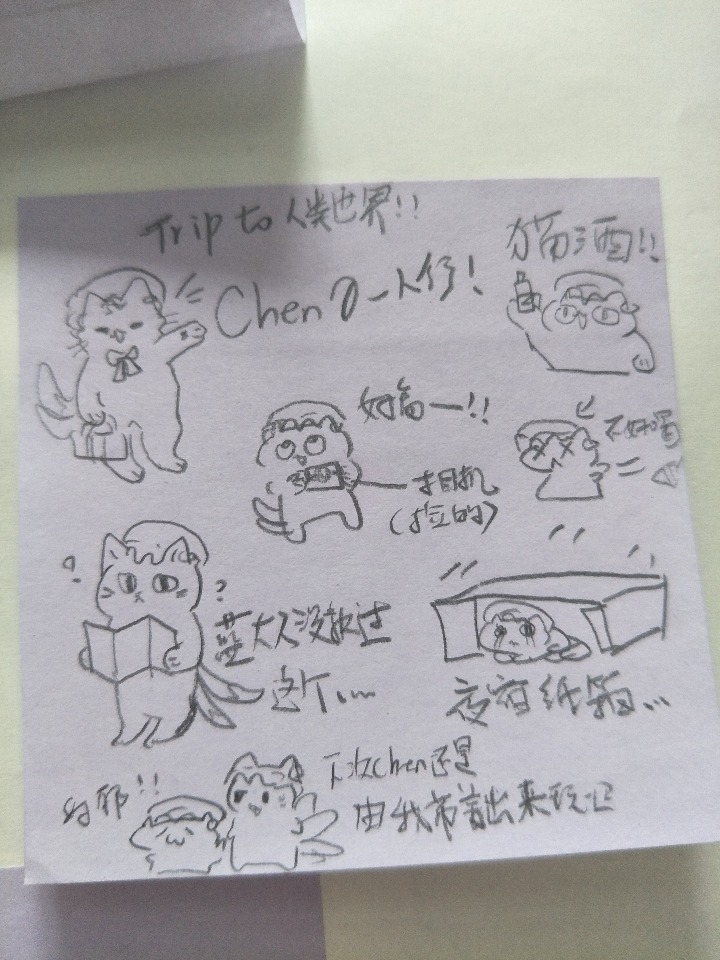 Trip to 人类世界!!
Chen の一人行!
猫酒!!
好高一!!
相机
(捡的)
不好喝
?
?
蓝大人没教过
这个....
夜宿纸箱...
好耶!!
下次chen还是
由我带着出来玩吧